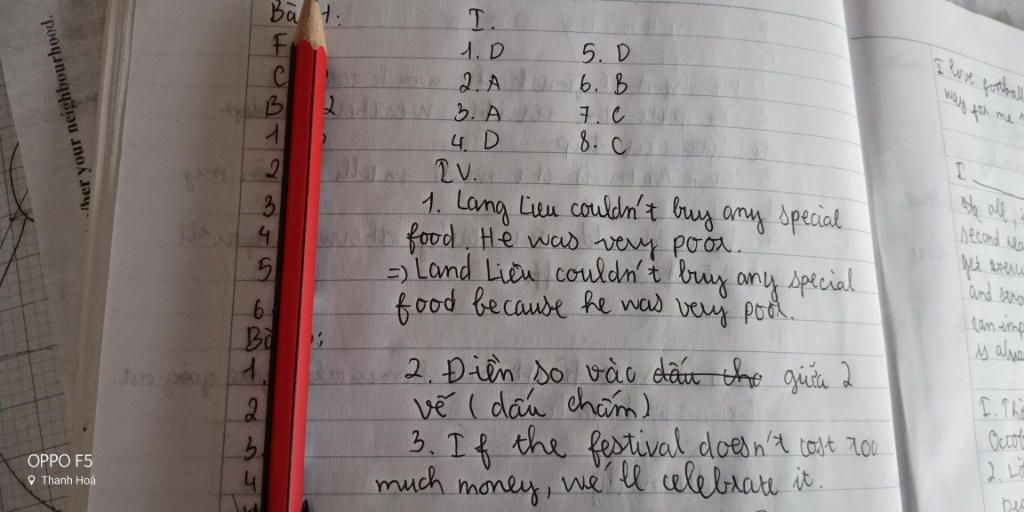 /her your neighbourhood.
Bài 1:
F
C
B 2
1
2
3
4
5
6.
1.
2
3.
4
I.
1. D 5. D
2. A 6. B
3. A 7. C
4. D 8. C
IV.
1. Lang Lieu couldn't buy any special
food. He was very poor.
=) Land Liêu couldn't buy any special
food because he was very poor.
2. Điền so vào dấu cho giữa 2
vế (dấu chấm)
3. If the festival doesn't cost too
much money, we'll celebrate it.
I love football
way for me
I
all,
second
and
is
I.
2.
OPPO F5
Thanh Hoá